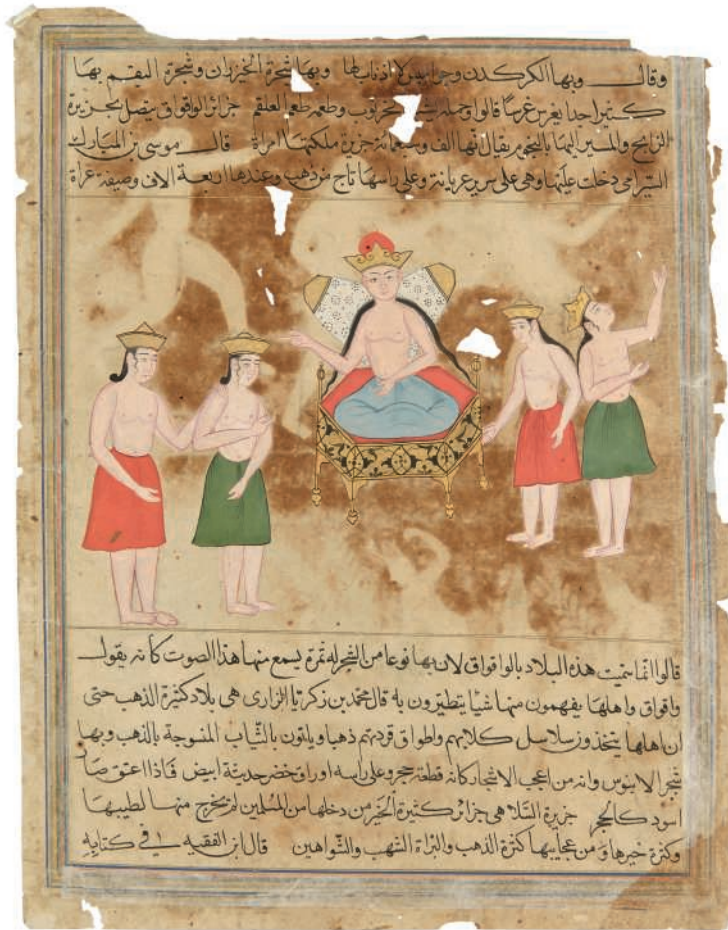 وقال وبها الكركدن وجواميس لا اذناب لها وبها شجرة الخيزران وشجرة البقم بها
كثير احدا يغرس غرسا قالوا وحمله الخرنوب وطعمه طعم العلقم جزائر الواقواق يتصل بجزيرة
الزابج والمسير اليها بالنجوم يقال انها الف وسبعمائة جزيرة ملكتها امراة قال موسى بن المبارك
السيرامى دخلت عليها وهى على سرير عريانة وعلى راسها تاج من ذهب وعندها اربعة الاف وصيفة عراة
قالوا انما سميت هذه البلاد بالواقواق لان بها نوعا من الشجر له ثمرة يسمع منها هذا الصوت كانه يقول
واقواق واهلها يفهمون منها شيئا يتطيرون به قال محمد بن زكريا الرازى هى بلاد كثيرة الذهب حتى
ان اهلها يتخذون سلاسل كلابهم واطواق قردتهم ذهبا وياتون بالثياب المنسوجة بالذهب وبها
شجر الابنوس وانه من اعجب الاشجار كانه قطعة حجر وعلى راسه اوراق خضر حديثة ابيض فاذا اعتق صار
اسود كالحجر جزيرة السلا هى جزائر كثيرة الخير من دخلها من المسلمين لم يخرج منها لطيبها
وكثرة خيرها ومن عجايبها كثرة الذهب والبزاة الشهب والشواهين قال ابن الفقيه فى كتابه